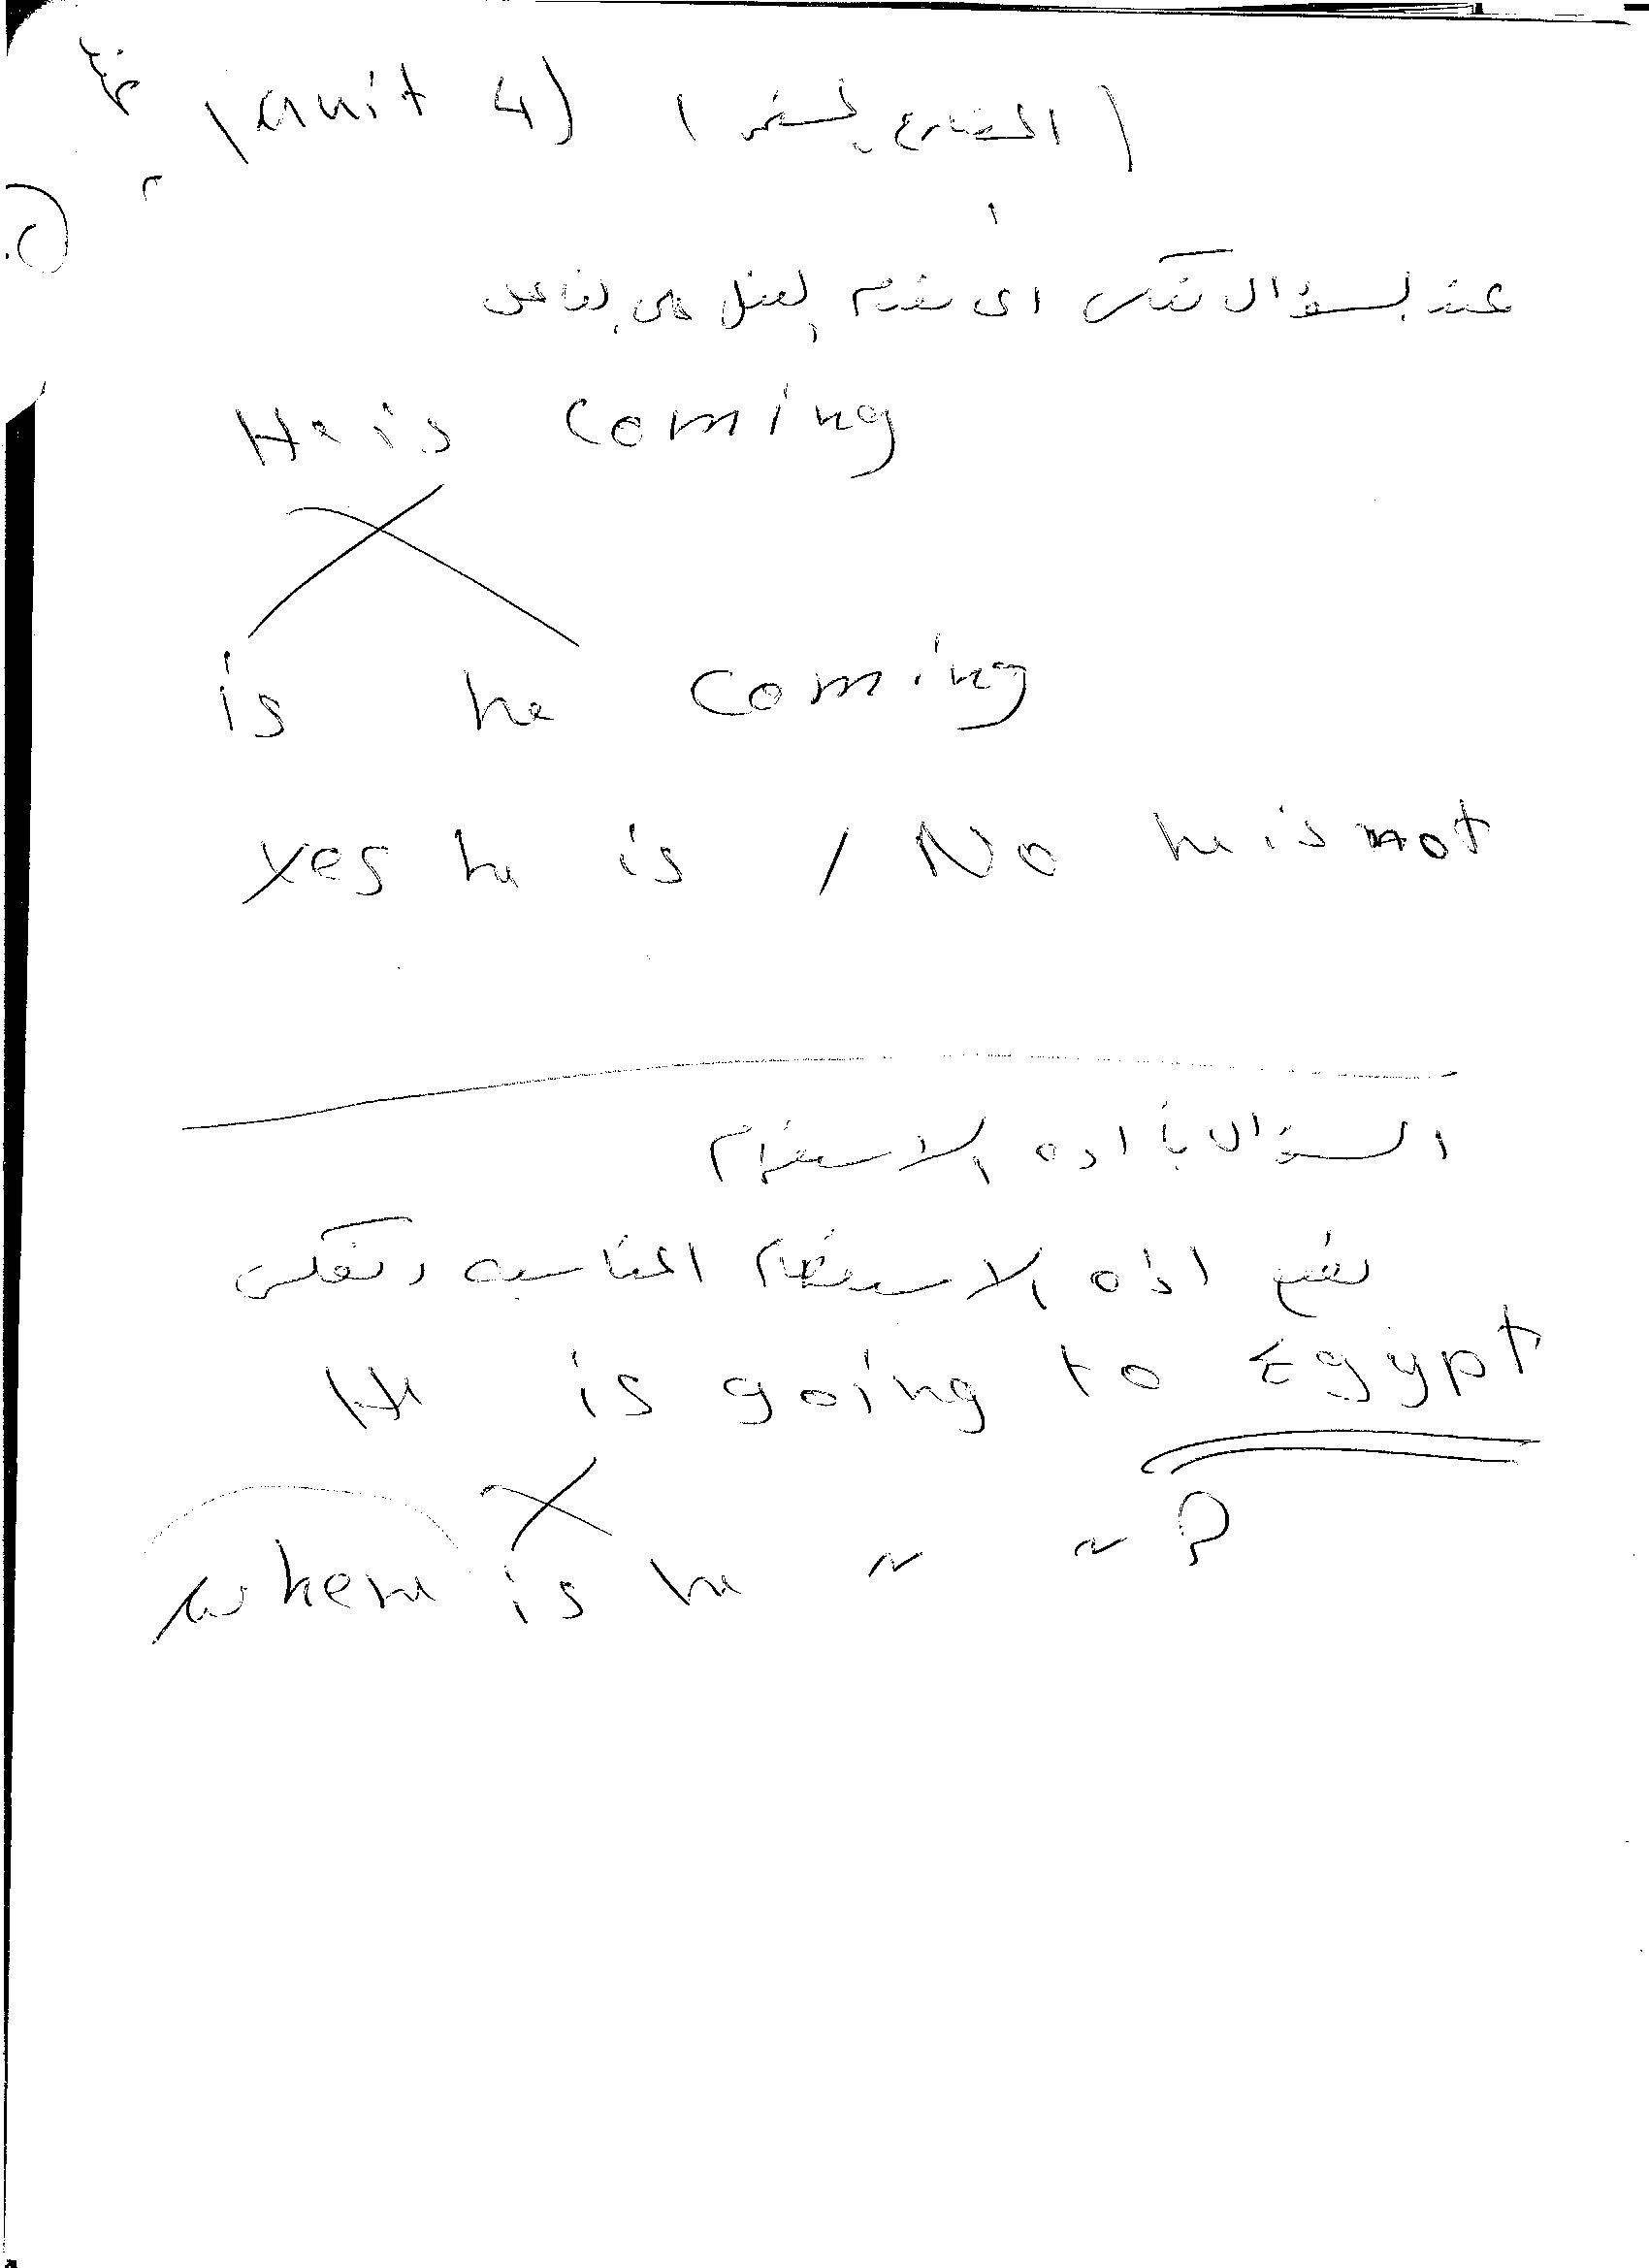 (unit 4) (المضارع المستمر)
عند السؤال نعكس اى نقدم الفعل على الفاعل
He is coming
is he coming
yes he is / No he is not
السؤال بأداه الاستفهام
نضع اداه الاستفهام المناسبه ونعكس
He is going to Egypt
where is he " " ?